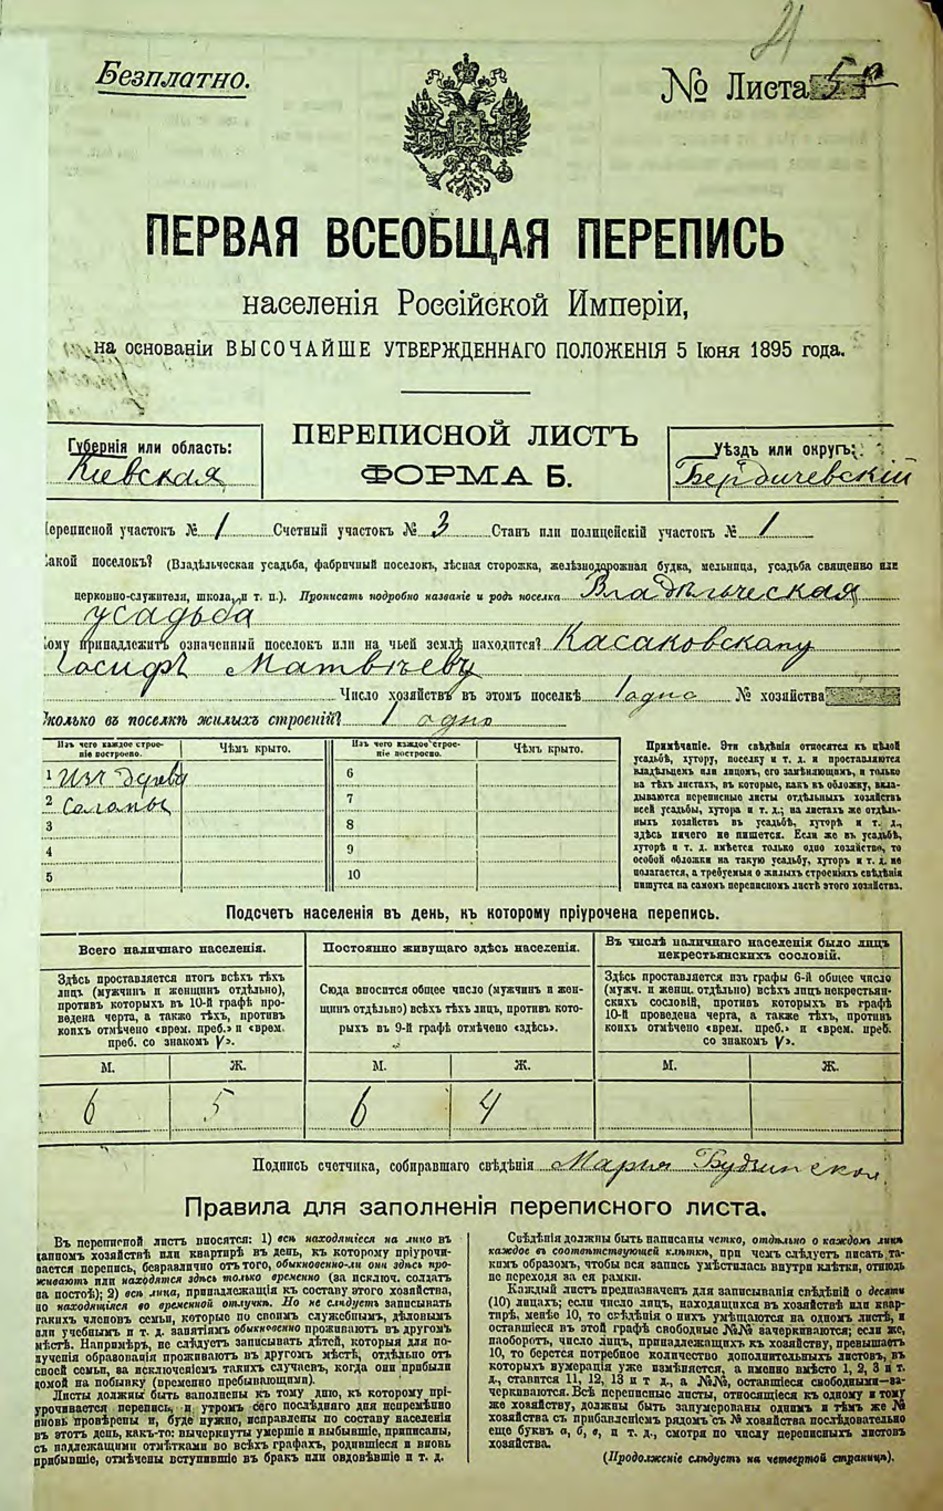 21
Безплатно.
№ Листа 5
ПЕРВАЯ ВСЕОБЩАЯ ПЕРЕПИСЬ
населенія Россійской Имперіи,
на основаніи ВЫСОЧАЙШЕ УТВЕРЖДЕННАГО ПОЛОЖЕНІЯ 5 Іюня 1895 года.
Губернія или область:
Кіевская
ПЕРЕПИСНОЙ ЛИСТЪ
ФОРМА Б.
Уѣздъ или округъ:
Бердичевскій
Переписной участокъ № 1 Счетный участокъ № 3 Станъ или полицейскій участокъ № 1
акой поселокъ? (Владѣльческая усадьба, фабричный поселокъ, лѣсная сторожка, желѣзнодорожная будка, мельница, усадьба священно или
церковно-служителя, школа, и т. п.). Прописать подробно названіе и родъ поселка Владѣльческая
усадьба
Кому принадлежитъ означенный поселокъ или на чьей землѣ находится? Касаковскому
Іосифъ Матвѣеву
Число хозяйствъ въ этомъ поселкѣ 1 одно № хозяйства
Сколько въ поселкѣ жилыхъ строеній? 1 одно
Изъ чего каждое строеніе построено.
Чѣмъ крыто.
Изъ чего каждое строеніе построено.
Чѣмъ крыто.
1 Изъ дерева 6
2 Соломы 7
3 8
4 9
5 10
Примѣчаніе. Эти свѣдѣнія относятся къ цѣлой
усадьбѣ, хутору, поселку и т. д. и проставляются
владѣльцемъ или лицомъ, его замѣняющимъ, и только
на тѣхъ листахъ, въ которые, какъ въ обложку, вкла-
дываются переписные листы отдѣльныхъ хозяйствъ
всей усадьбы, хутора и т. д.; на листахъ же отдѣль-
ныхъ хозяйствъ въ усадьбѣ, хуторѣ и т. д.,
здѣсь ничего не пишется. Если же въ усадьбѣ,
хуторѣ и т. д. имѣется только одно хозяйство, то
особой обложки на такую усадьбу, хуторъ и т. д. не
полагается, а требуемыя о жилыхъ строеніяхъ свѣдѣнія
пишутся на самомъ переписномъ листѣ этого хозяйства.
Подсчетъ населенія въ день, къ которому пріурочена перепись.
Всего наличнаго населенія.
Здѣсь проставляется итогъ всѣхъ тѣхъ
лицъ (мужчинъ и женщинъ отдѣльно),
противъ которыхъ въ 10-й графѣ про-
ведена черта, а также тѣхъ, противъ
коихъ отмѣчено «врем. преб.» и «врем.
преб. со знакомъ V».
Постоянно живущаго здѣсь населенія.
Сюда вносится общее число (мужчинъ и жен-
щинъ отдѣльно) всѣхъ тѣхъ лицъ, противъ кото-
рыхъ въ 9-й графѣ отмѣчено «здѣсь».
Въ числѣ наличнаго населенія было лицъ
некрестьянскихъ сословій.
Здѣсь проставляется изъ графы 6-й общее число
(мужч. и женщ. отдѣльно) всѣхъ лицъ некрестьян-
скихъ сословій, противъ которыхъ въ графѣ
10-й проведена черта, а также тѣхъ, противъ
коихъ отмѣчено «врем. преб.» и «врем. преб.
со знакомъ V».
М. Ж. М. Ж. М. Ж.
6 5 6 4
Подпись счетчика, собиравшаго свѣдѣнія Марія Будзинская
Правила для заполненія переписного листа.
Въ переписной листъ вносятся: 1) всѣ находящіеся на лицо въ
данномъ хозяйствѣ или квартирѣ въ день, къ которому пріурочи-
вается перепись, безразлично отъ того, обыкновенно-ли они здѣсь про-
живаютъ или находятся здѣсь только временно (за исключ. солдатъ
на постоѣ); 2) всѣ лица, принадлежащія къ составу этого хозяйства,
но находящіяся во временной отлучкѣ. Но не слѣдуетъ записывать
такихъ членовъ семьи, которые по своимъ служебнымъ, дѣловымъ
или учебнымъ и т. д. занятіямъ обыкновенно проживаютъ въ другомъ
мѣстѣ. Напримѣръ, не слѣдуетъ записывать дѣтей, которыя для по-
лученія образованія проживаютъ въ другомъ мѣстѣ, отдѣльно отъ
своей семьи, за исключеніемъ такихъ случаевъ, когда они прибыли
домой на побывку (временно пребывающими).
Листы должны быть заполнены къ тому дню, къ которому прі-
урочивается перепись, и утромъ сего послѣдняго дня непремѣнно
вновь провѣрены и, буде нужно, исправлены по составу населенія
въ этотъ день, какъ-то: вычеркнуты умершіе и выбывшіе, приписаны,
съ надлежащими отмѣтками во всѣхъ графахъ, родившіеся и вновь
прибывшіе, отмѣчены вступившіе въ бракъ или овдовѣвшіе и т. д.
Свѣдѣнія должны быть написаны четко, отдѣльно о каждомъ лицѣ
каждое въ соотвѣтствующей клѣткѣ, при чемъ слѣдуетъ писать та-
кимъ образомъ, чтобы вся запись умѣстилась внутри клѣтки, отнюдь
не переходя за ея рамки.
Каждый листъ предназначенъ для записыванія свѣдѣній о десяти
(10) лицахъ; если число лицъ, находящихся въ хозяйствѣ или квар-
тирѣ, менѣе 10, то свѣдѣнія о нихъ умѣщаются на одномъ листѣ, и
оставшіеся въ этой графѣ свободные №№ зачеркиваются; если же,
наоборотъ, число лицъ, принадлежащихъ къ хозяйству, превышаетъ
10, то берется потребное количество дополнительныхъ листовъ, въ
которыхъ нумерація уже измѣняется, а именно вмѣсто 1, 2, 3 и т.
д., ставится 11, 12, 13 и т д., а №№, оставшіеся свободными—за-
черкиваются. Всѣ переписные листы, относящіеся къ одному и тому
же хозяйству, должны быть занумерованы однимъ и тѣмъ же №
хозяйства съ прибавленіемъ рядомъ съ № хозяйства послѣдовательно
еще буквъ а, б, в, и т. д., смотря по числу переписныхъ листовъ
хозяйства.
(Продолженіе слѣдуетъ на четвертой страницѣ).